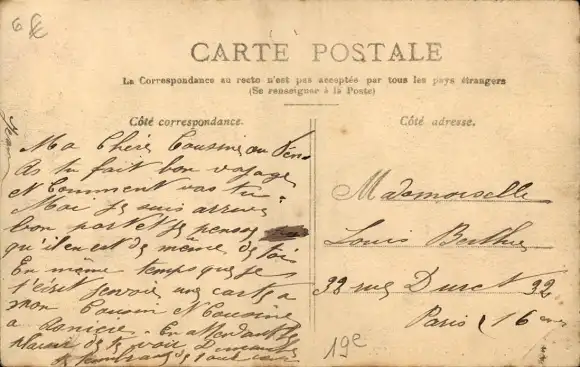 6 €
CARTE POSTALE
La Correspondance au recto n'est pas acceptée par tous les pays étrangers
(Se renseigner à la Poste)
Côté correspondance.
Ma Chère Cousine
As tu fait bon voyage
et Comment vas tu
Moi je suis arrivé
bon port et je pense
qu'il en est de même de toi
En même temps que je
t'écrit j'envoie une carte a
mon Cousin et Cousine
a Asnière. En attendant le
plaisir de te voir Dimanche
je t'embrasse de tout
Côté adresse.
Mademoiselle
Louis Berthe
32 rue Duret 32
Paris 16 eme
19e